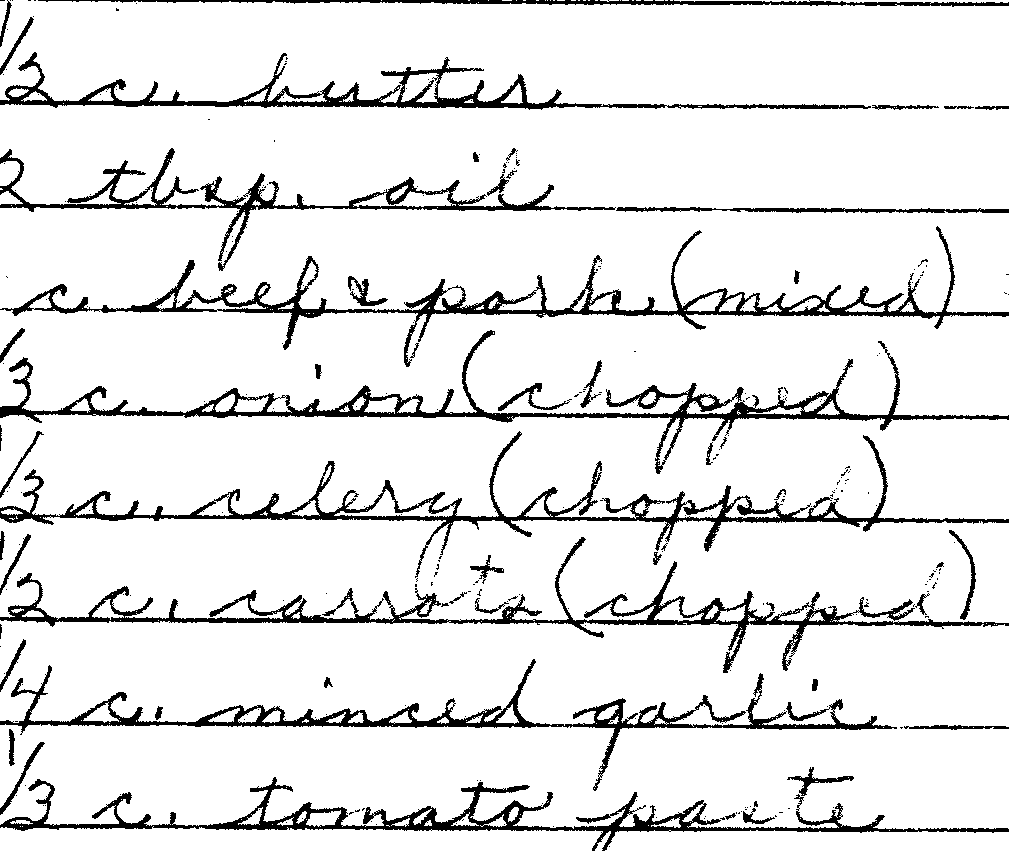 1/2 c. butter
2 tbsp. oil
c. beef & pork (mixed)
/3 c. onion (chopped)
1/3 c. celery (chopped)
1/2 c. carrots (chopped)
1/4 c. minced garlic
1/3 c. tomato paste